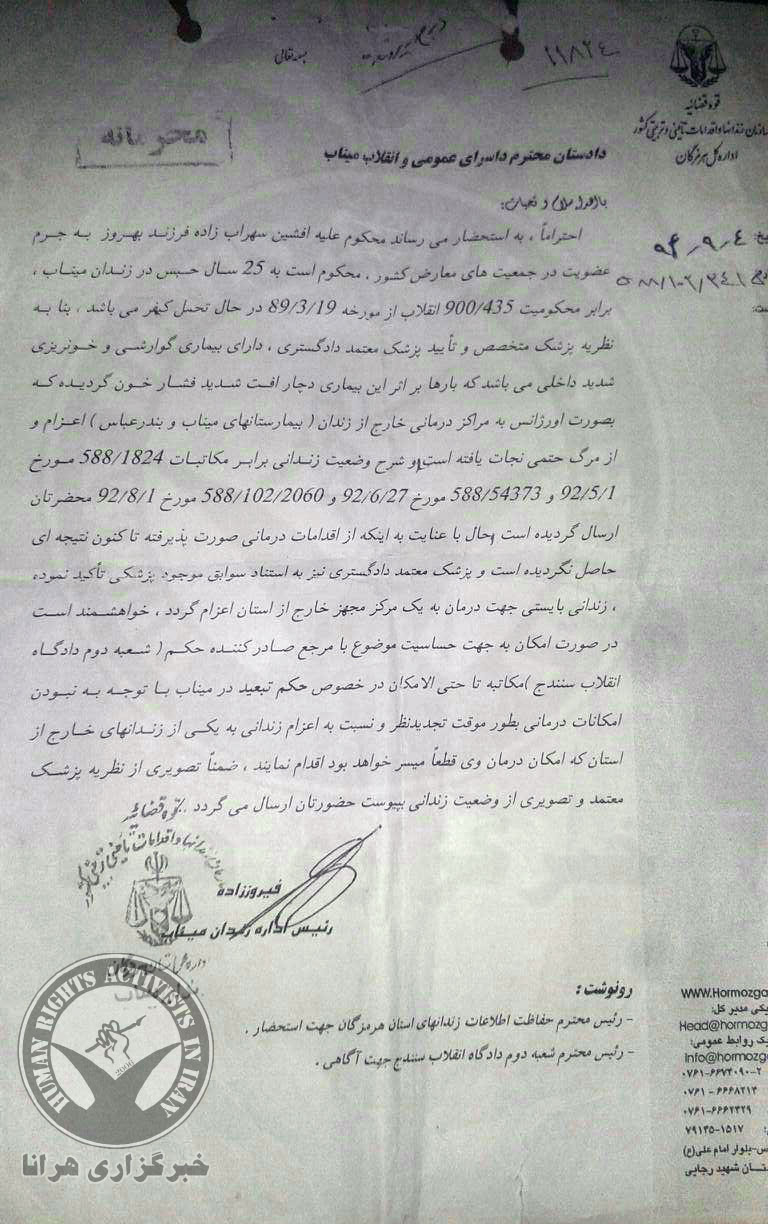 بسمه تعالی
۲۱۸۲۴
قوه قضائیه
سازمان زندانها و اقدامات تأمینی و تربیتی کشور
اداره کل هرمزگان
محرمانه
دادستان محترم دادسرای عمومی و انقلاب میناب
با اهداء سلام و تحیات:
احتراماً ، به استحضار می رساند محکوم علیه افشین سهراب زاده فرزند بهروز به جرم
عضویت در جمعیت های معارض کشور ، محکوم است به 25 سال حبس در زندان میناب ،
برابر محکومیت 900/435 انقلاب از مورخه 89/3/19 در حال تحمل کیفر می باشد ، بنا به
نظریه پزشک متخصص و تأیید پزشک معتمد دادگستری ، دارای بیماری گوارشی و خونریزی
شدید داخلی می باشد که بارها بر اثر این بیماری دچار افت شدید فشار خون گردیده که
بصورت اورژانس به مراکز درمانی خارج از زندان ( بیمارستانهای میناب و بندرعباس ) اعزام و
از مرگ حتمی نجات یافته است و شرح وضعیت زندانی برابر مکاتبات 588/1824 مورخ
92/5/1 و 588/54373 مورخ 92/6/27 و 588/102/2060 مورخ 92/8/1 محضرتان
ارسال گردیده است ، حال با عنایت به اینکه از اقدامات درمانی صورت پذیرفته تا کنون نتیجه ای
حاصل نگردیده است و پزشک معتمد دادگستری نیز به استناد سوابق موجود پزشکی تأکید نموده
، زندانی بایستی جهت درمان به یک مرکز مجهز خارج از استان اعزام گردد ، خواهشمند است
در صورت امکان به جهت حساسیت موضوع با مرجع صادر کننده حکم ( شعبه دوم دادگاه
انقلاب سنندج )مکاتبه تا حتی الامکان در خصوص حکم تبعید در میناب با توجه به نبودن
امکانات درمانی بطور موقت تجدیدنظر و نسبت به اعزام زندانی به یکی از زندانهای خارج از
استان که امکان درمان وی قطعاً میسر خواهد بود اقدام نمایند ، ضمناً تصویری از نظریه پزشک
معتمد و تصویری از وضعیت زندانی بپیوست حضورتان ارسال می گردد .
قوه قضائیه
فیروززاده
رئیس اداره زندان میناب
رونوشت :
- رئیس محترم حفاظت اطلاعات زندانهای استان هرمزگان جهت استحضار .
- رئیس محترم شعبه دوم دادگاه انقلاب سنندج جهت آگاهی .
WWW.Hormozga
یکی مدیر کل:
Head@hormozg
یک روابط عمومی:
Info@hormozg
۰۷۶۱-۶۶۷۴۰۹۰-۲
۰۷۶۱-۶۶۶۸۲۱۳
۰۷۶۱-۶۶۶۲۳۲۹
۷۹۱۳۵-۱۵۱۷
س-بلوار امام علی(ع)
شهید رجایی
HUMAN RIGHTS ACTIVISTS IN IRAN
2006
خبرگزاری هرانا